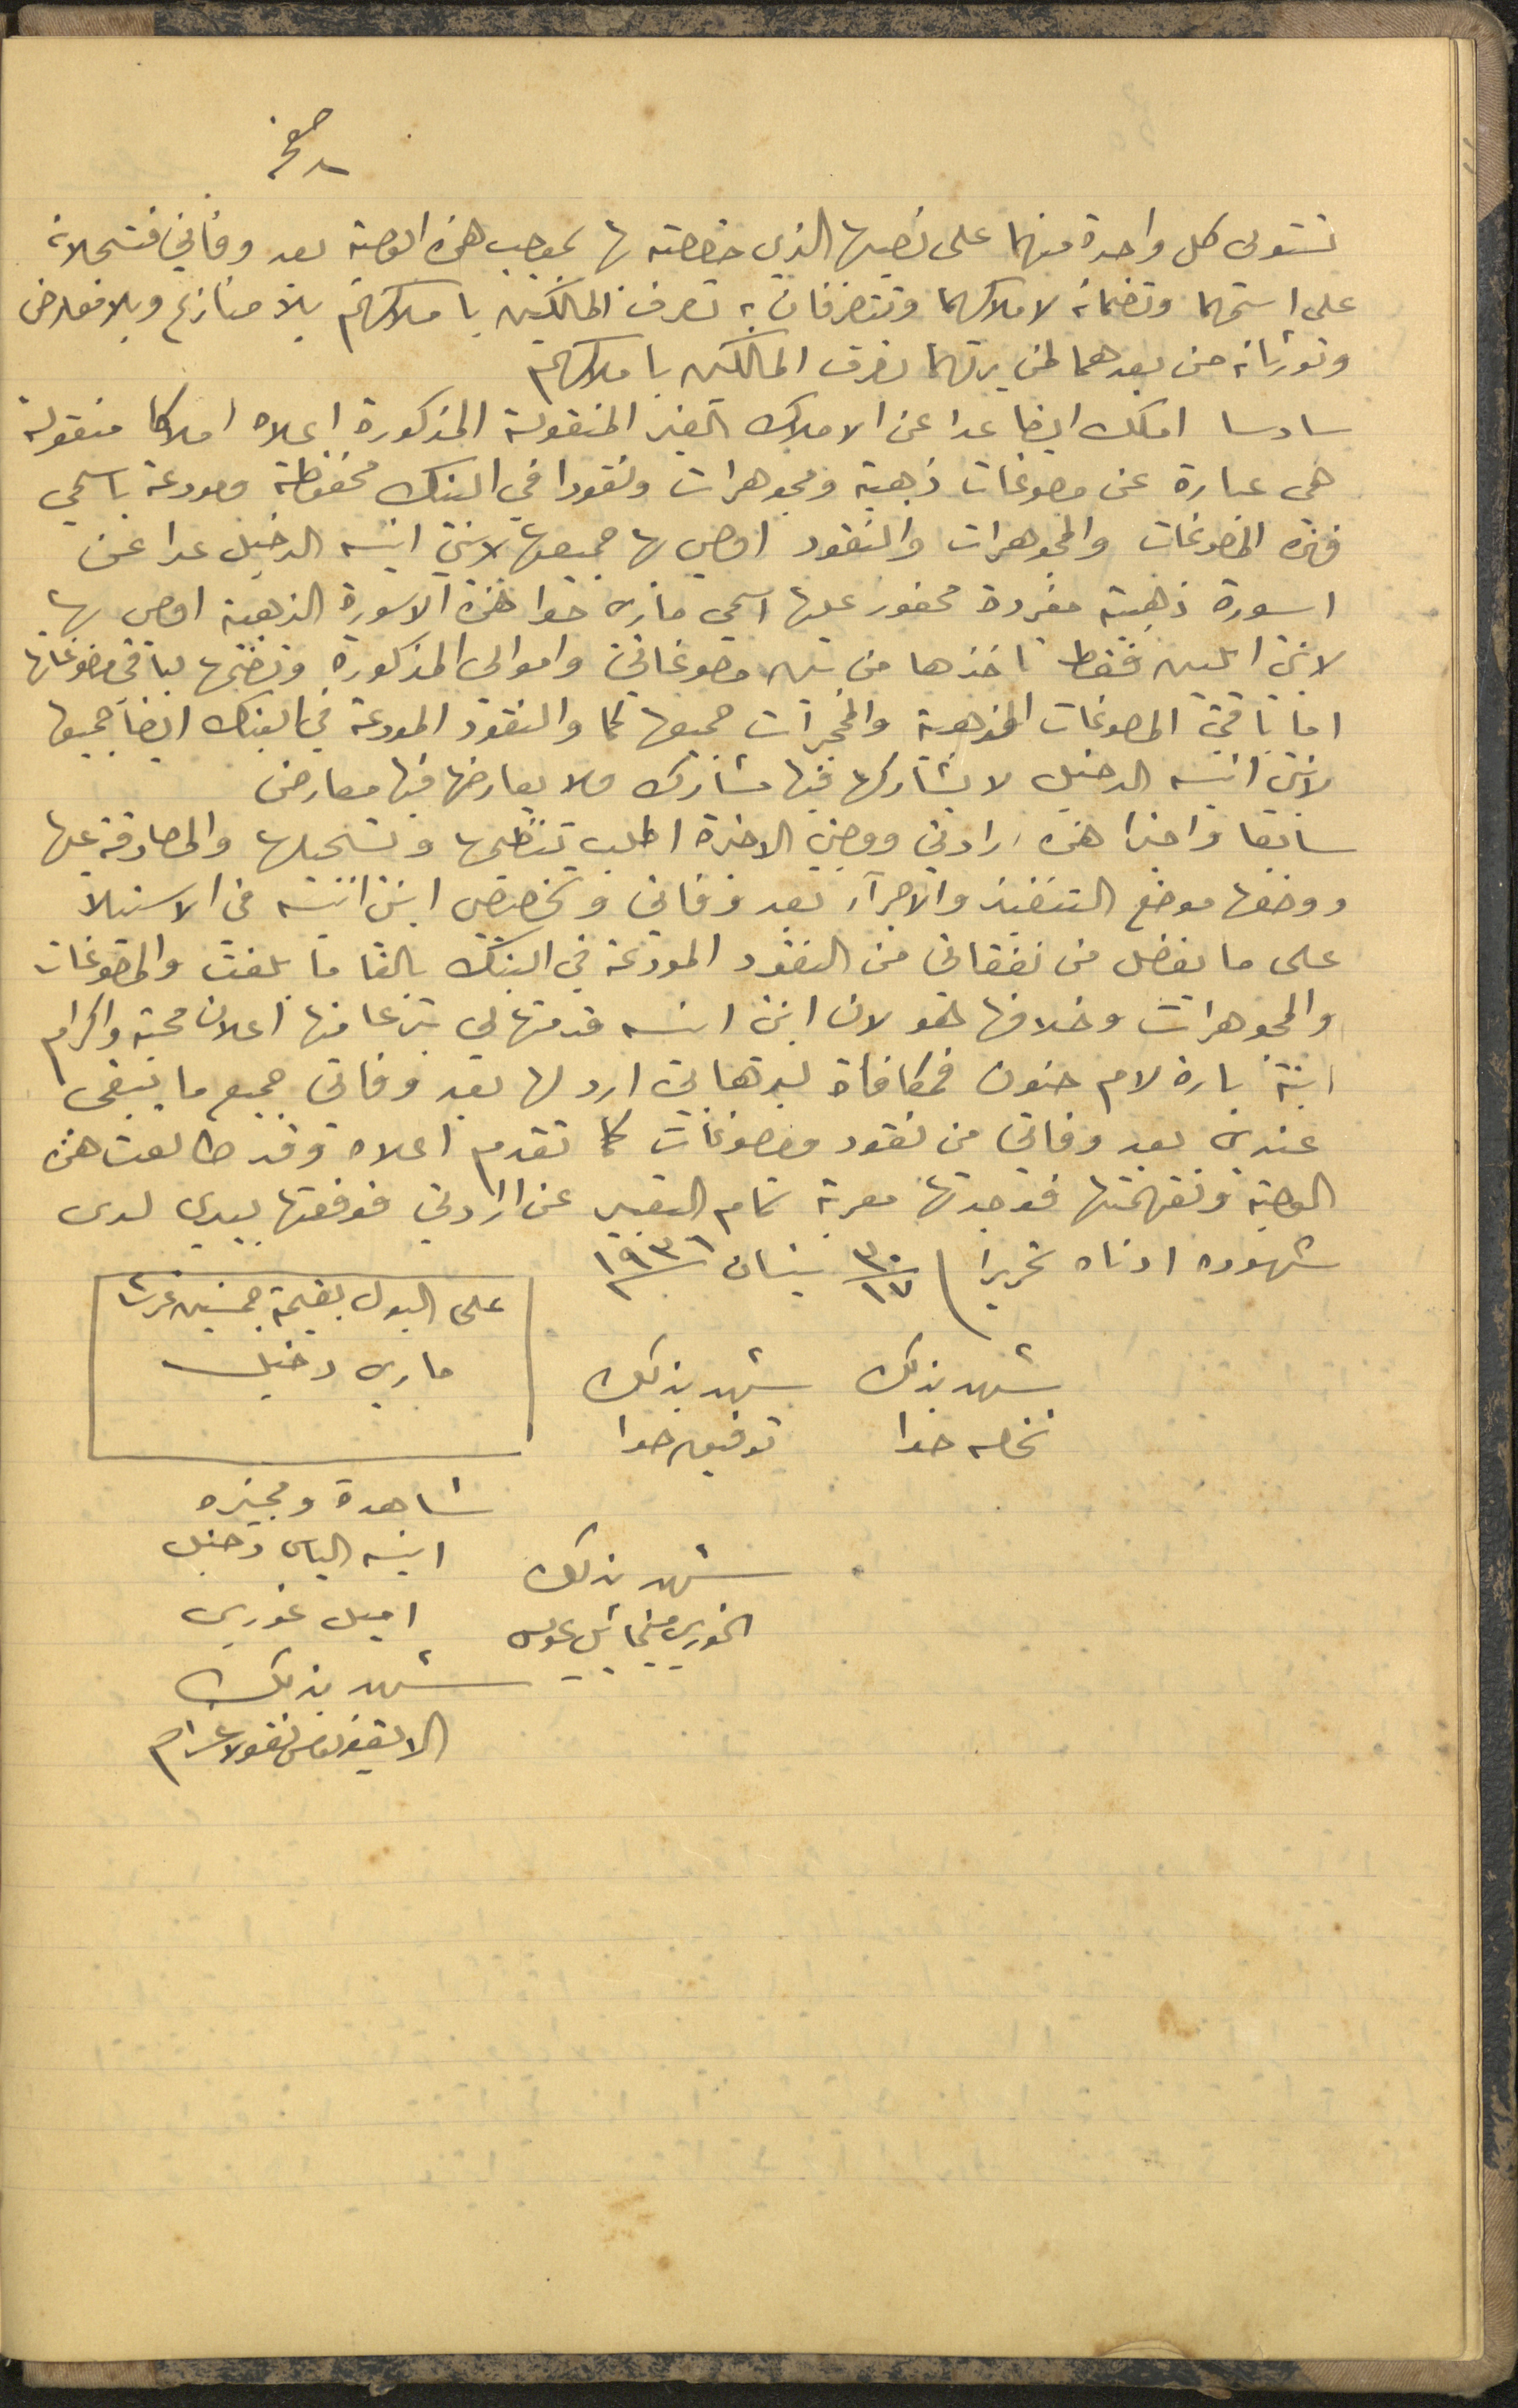 صفحة
تستولي كل واحدة منهما على نصيبها الذي خصصته لها بموجب هذه الوصية بعد وفاتي فتسجلانه
على اسمهما وتضمانه لاملاكهما وتتصرفان به تصرف المالكين باملاكهم بلا منازع وبلا معارض
وتورثانه من بعدهما لمن يرثهما تصرف المالكين باملاكهم
سادسا املك ايضا عدا عن الاملاك الغير المنقولة المذكورة اعلاه املاكا منقولة
هي عبارة عن مصوغات ذهبية ومجوهرات ونقودا في البنك محفوظة ومودعة باسمي
فهذه المصوغات والمجوهرات والنقود اوصي بها جميعها لابنتي انيسه الدخيل عدا عن
اسورة ذهبية مفردة محفور عليها اسمي ماري حوا هذه الاسورة الذهبية اوصي بها
لابنتي ايلين فقط تاخذها من بين مصوغاتي واموالي المذكورة وتضمها لباقي مصوغاتها
اما باقي المصوغات الذهبية والمجوهرات جميعها كما والنقود المودعة في البنك ايضا جميعها
لابنتي انيسه الدخيل لا يشاركها فيها مشارك ولا يعارضها فيها معارض
سابعا واخيرا هذه ارادتي ووصيتي الاخيرة اطلب تنظيمها وتسجيلها والمصادقة عليها
ووضعها موضع التنفيذ والاجرآء بعد وفاتي وتخصيص ابنتي انيسه في الاستيلا
على ما يفضل من نفقاتي من النقود المودعة في البنك بالغا ما بلغت والمصوغات
والمجوهرات وخلافها هو لان ابنتي انيسه قدمتها لي تبرعا منها اعلان محبة واكرام
ابنة بارة لام حنون فمكافاة لبرها بي ارد لها بعد وفاتي جميع ما يبقى
عندي بعد وفاتي من نقود ومصوغات كما تقدم اعلاه وقد طالعت هذه
الوصية وتفهمتها فوجدتها معربة تمام التعبير عن ارادتي فوقعتها بيدي لدى
شهوده ادناه تحريرا ٣٠/١٧ نيسان ١٩٣٦
على البول بقيمة خمسين غرشا
ماري دخيل
شهد بذلك شهد بذلك
نخله حوا توفيق حوا
شاهدة ومجيزه
انيسه الياس دخيل
شهد بذلك
اميل خوري
الخوري ميخائيل
شهد بذلك
نقولا